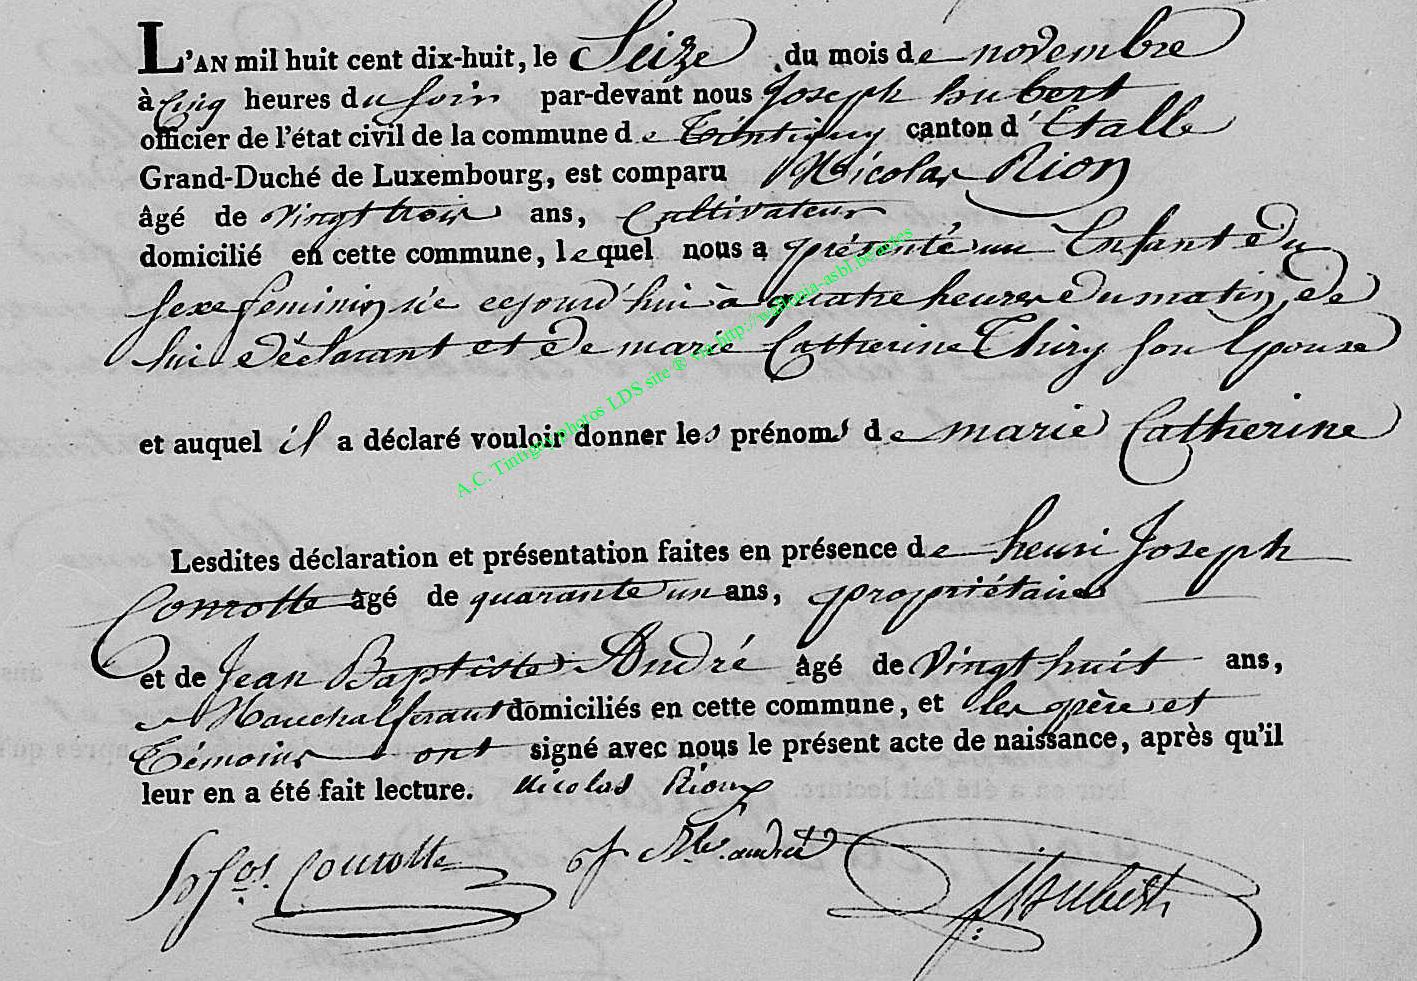 L'AN mil huit cent dix-huit, le Seize du mois de novembre
à Cinq heures du soir par-devant nous Joseph hubert
officier de l'état civil de la commune de Tintigny canton d'Etalle
Grand-Duché de Luxembourg, est comparu Nicolas Rion
âgé de vingt trois ans, Cultivateur
domicilié en cette commune, lequel nous a présenté un Enfant du
sexe feminin né cejourd'hui à quatre heures du matin, de
lui déclarant et de marie Catherine Thiry son Epouse
et auquel il a déclaré vouloir donner les prénoms de marie Catherine
Lesdites déclaration et présentation faites en présence de henri Joseph
Conrotte âgé de quarante un ans, propriétaire
et de Jean Baptiste André âgé de vingt huit ans,
Marechal ferant domiciliés en cette commune, et les père et
Témoins ont signé avec nous le présent acte de naissance, après qu'il
leur en a été fait lecture. Nicolas Rion
hjos. Conrotte J Bte. andré
J hubert
A.C. Tintigny photos LDS site ® via http://wallonia-asbl.be/actes